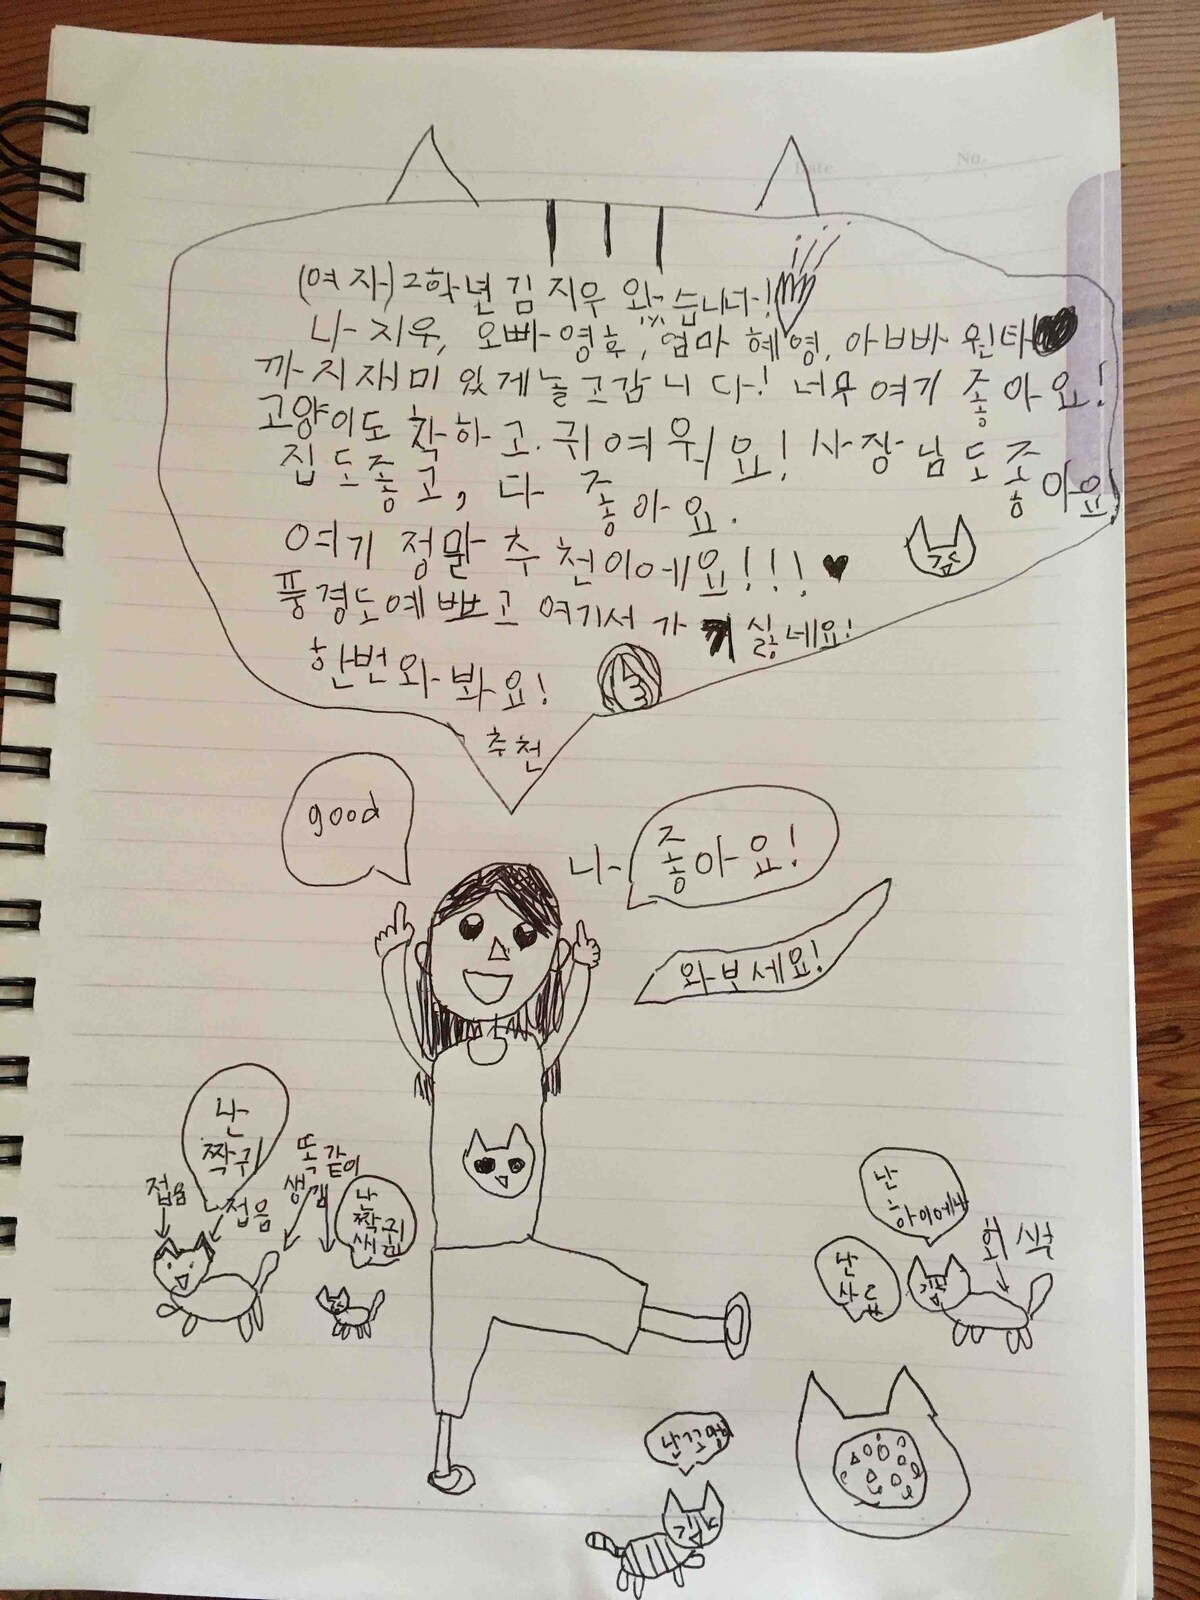 Date. No.
(여자) 2학년 김지우 왔습니다!
나 지우, 오빠 영훈, 엄마 혜영, 아빠 원태
까지 재미있게 놀고 갑니다! 너무 여기 좋아요!
고양이도 착하고 귀여워요! 사장님도 좋아요
집도 좋고, 다 좋아요.
여기 정말 추천이에요!!!
풍경도 예쁘고 여기서 가기 싫네요!
한번 와 봐요!
추천
good
나
좋아요!
와보세요!
난 짝귀
접음
접음
똑같이 생김
난 짝귀 새끼
난 하이에나
난 삼룡
회색
난 꼬맹이